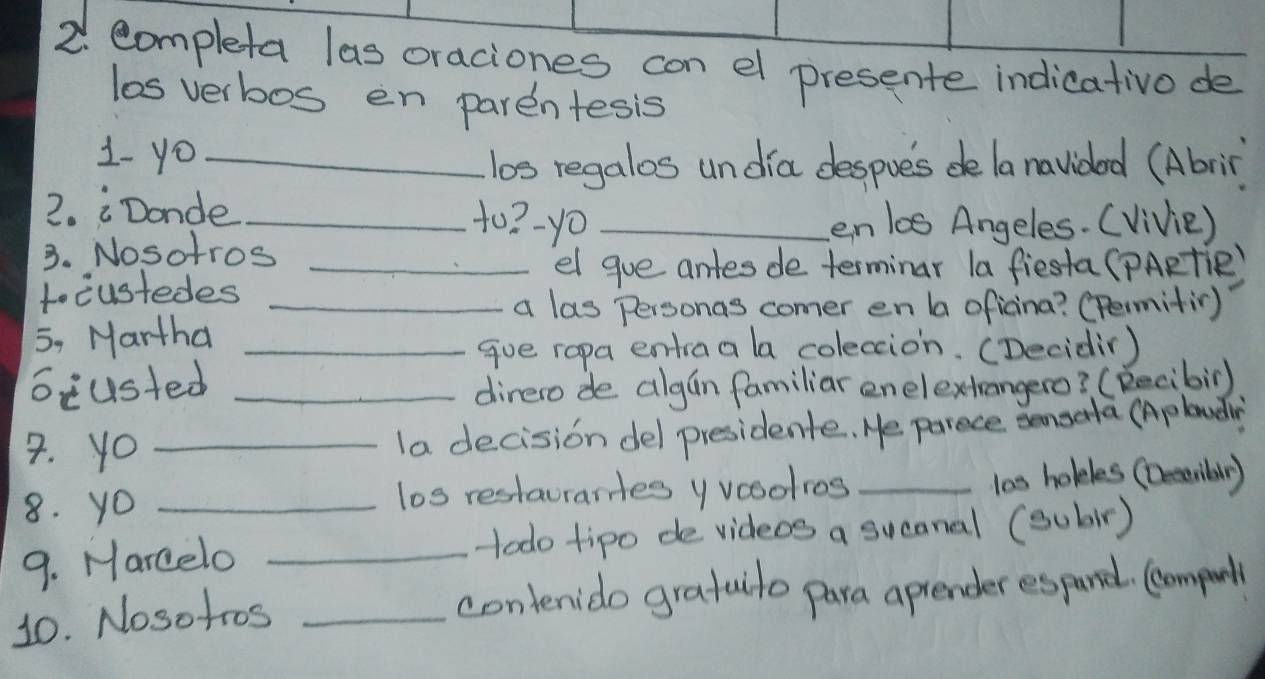 2. Completa las oraciones con el presente indicativo de
los verbos en paréntesis
1- yo ____ los regalos undía despues de la navidad (Abrir
2. ¿Donde ____ tu? - yo ____ en los Angeles. (ViViR)
3. Nosotros ____ el que antes de terminar la fiesta (PARTIR)
4. ¿ustedes ____ a las Personas comer en la oficina? (Permitir)
5, Martha ____ que ropa entra a la colección. (Decidir)
6 ¿usted ____ direro de algún familiar enelextrangero? (Recibir)
7. yo ____ la decisión del presidente. Me parece sensata (Aplaudir
8. yo ____ los restaurantes y vosotros ____ los holeles
9. Marcelo ____ todo tipo de videos a sucanal (subir)
10. Nosotros ____ contenido gratuito para aprender (comparti